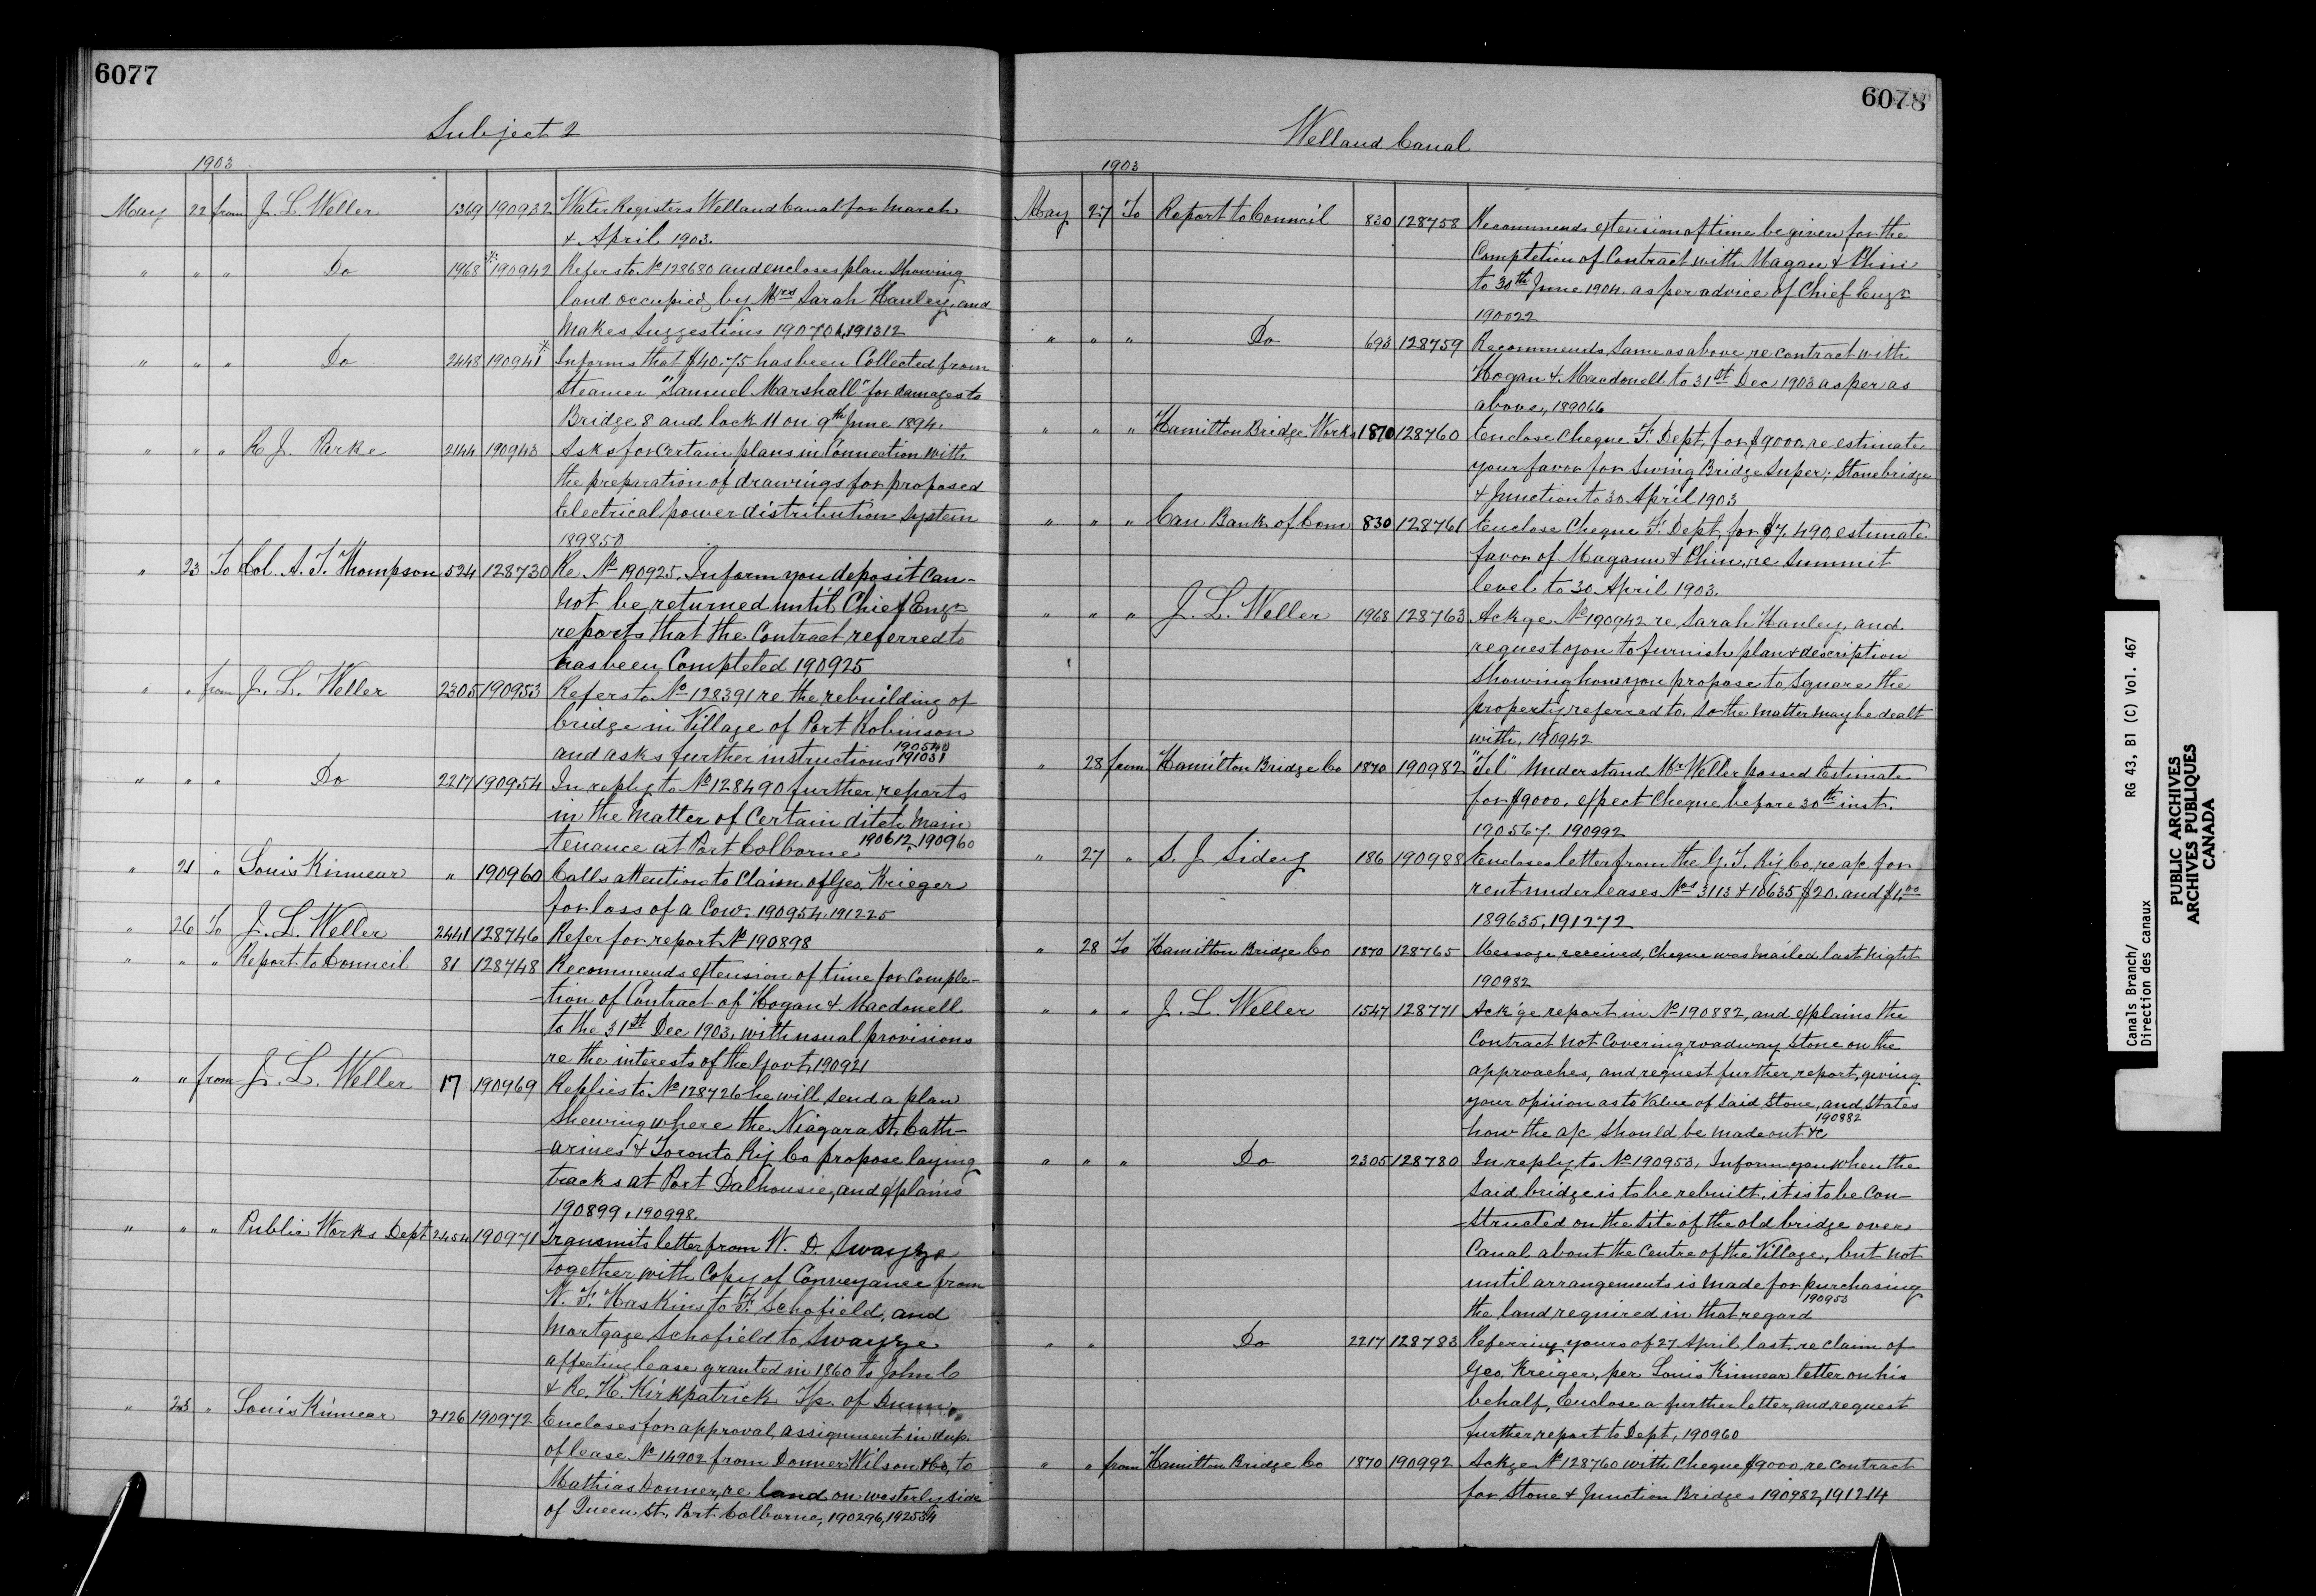 6077
Subject 2
1903
May 22 from J. L. Weller 1369 190932 Water Registers Welland Canal for March
& April 1903.
" " " Do 1968 190942 Refers to No 128680 and encloses plan showing
land occupied by Mrs Sarah Hanley, and
makes suggestions 190701, 191312
" " " Do 2448 190941 Informs that $40.75 has been Collected from
Steamer "Samuel Marshall" for damages to
Bridge 8 and lock 11 on 9th June 1894.
" " " R. J. Parke 2144 190943 Asks for certain plans in Connection with
the preparation of drawings for proposed
Electrical power distribution System
189850
" 23 To Col. A. T. Thompson 524 128730 Re No 190925. Inform you deposit can-
not be returned until Chief Engr
reports that the Contract referred to
has been Completed 190925
" " from J. L. Weller 2305 190953 Refers to No 128391 re the rebuilding of
bridge in Village of Port Robinson
and asks further instructions 190540 191031
" " " Do 2217 190954 In reply to No 128490 further reports
in the Matter of Certain ditch Main
tenance at Port Colborne 190612, 190960
" 21 " Louis Kinnear " 190960 Calls attention to Claim of Geo. Krieger
for loss of a Cow. 190954, 191225
" 26 To J. L. Weller 2441 128746 Refer for report No 190898
" " " Report to Council 81 128748 Recommends extension of time for Comple-
tion of Contract of Hogan & Macdonell
to the 31st Dec 1903, with usual provisions
re the interests of the Govt, 190921
" " from J. L. Weller 17 190969 Replies to No 128726 he will send a plan
shewing where the Niagara St. Cath-
arines & Toronto Ry Co propose laying
tracks at Port Dalhousie, and explains
190899, 190998.
" " " Public Works Dept 2454 190971 Transmits letter from W. D. Swayze
together with Copy of Conveyance from
W. F. Haskins to F. Schofield, and
Mortgage Schofield to Swayze
affecting lease granted in 1860 to John C
& R. H. Kirkpatrick Tp. of Dunn
" 23 " Louis Kinnear 2126 190972 Encloses for approval, assignment in dup.
of lease No 14902 from Donner Wilson & Co, to
Mathias Donner, re land on westerly side
of Queen St. Port Colborne, 190296, 192534
6078
Welland Canal
1903
May 27 To Report to Council 830 128758 Recommends extension of time be given for the
Completion of Contract with Magan & Phin
to 30th June 1904. as per advice of Chief Engr
190022
" " " Do 693 128759 Recommends same as above re contract with
Hogan & Macdonell to 31st Dec 1903 as per as
above, 189066
" " " Hamilton Bridge Works 1870 128760 Enclose Cheque F. Dept, for $9000, re estimate
your favor for Swing Bridge Super; Stonebridge
& Junction to 30 April 1903
" " " Can Bank of Com 830 128761 Enclose Cheque F. Dept, for $7,490, estimate
favor of Magann & Phin, re Summit
level to 30 April 1903.
" " " J. L. Weller 1968 128763 Ackge No 190942 re Sarah Hanley, and
request you to furnish plan & description
showing how you propose to Square the
property referred to. So the matter may be dealt
with, 190942
" 28 from Hamilton Bridge Co 1870 190982 "Tel" Understand Mr Weller passed Estimate
for $9000, expect Cheque before 30th inst.
190567. 190992
" 27 " S. J. Sidey 186 190988 Encloses letter from the G. T. Ry Co, re a/c for
rent under leases Nos 3113 & 10635 $20. and $1.00
189635, 191272
" 28 To Hamilton Bridge Co 1870 128765 Message received, Cheque was mailed last night
190982
" " " J. L. Weller 1547 128771 Ack'ge report in No 190882, and explains the
Contract not Covering roadway stone on the
approaches, and request further report, giving
your opinion as to Value of said Stone, and States
how the a/c should be made out &c 190882
" " " Do 2305 128780 In reply to No 190953, Inform you when the
said bridge is to be rebuilt. it is to be Con-
structed on the Site of the old bridge over
Canal about the Centre of the Village, but not
until arrangements is made for purchasing
the land required in that regard 190953
" " Do 2217 128783 Referring yours of 27 April last, re claim of
Geo. Kreiger, per Louis Kinnear letter on his
behalf, Enclose a further letter, and request
further report to Dept, 190960
" " from Hamilton Bridge Co 1870 190992 Ackge No 128760 with Cheque $9000, re contract
for Stone & Junction Bridges 190982, 191214
Canals Branch/ RG 43, B1 (C) Vol. 467
Direction des canaux
PUBLIC ARCHIVES
ARCHIVES PUBLIQUES
CANADA